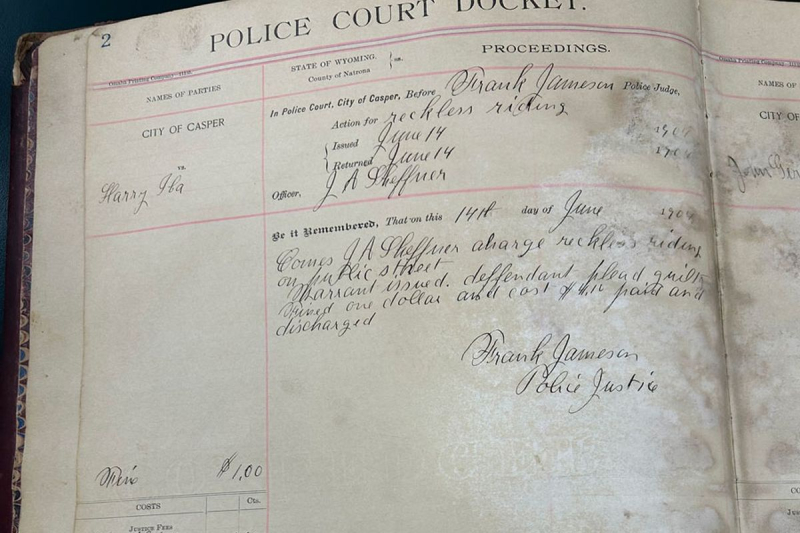 2
POLICE COURT DOCKET.
Omaha Printing Company
NAMES OF PARTIES
STATE OF WYOMING,
County of Natrona
ss.
PROCEEDINGS.
CITY OF CASPER
vs.
Harry Iba
In Police Court, City of Casper, Before Frank Jameson Police Judge,
Action for reckless riding
Issued June 14 190
Returned June 14 190
Officer, J A Sheffner
Be it Remembered, That on this 14th day of June 190
Comes J A Sheffner charge reckless riding
on public street
Warrant issued. deffendant plead guilt
Fined one dollar and cost paid and
discharged
Frank Jameson
Police Justice
Fine $1,00
COSTS Cts.
JUSTICE FEES
Omaha Printing Company
NAMES OF
CITY OF
John
CO
Jus